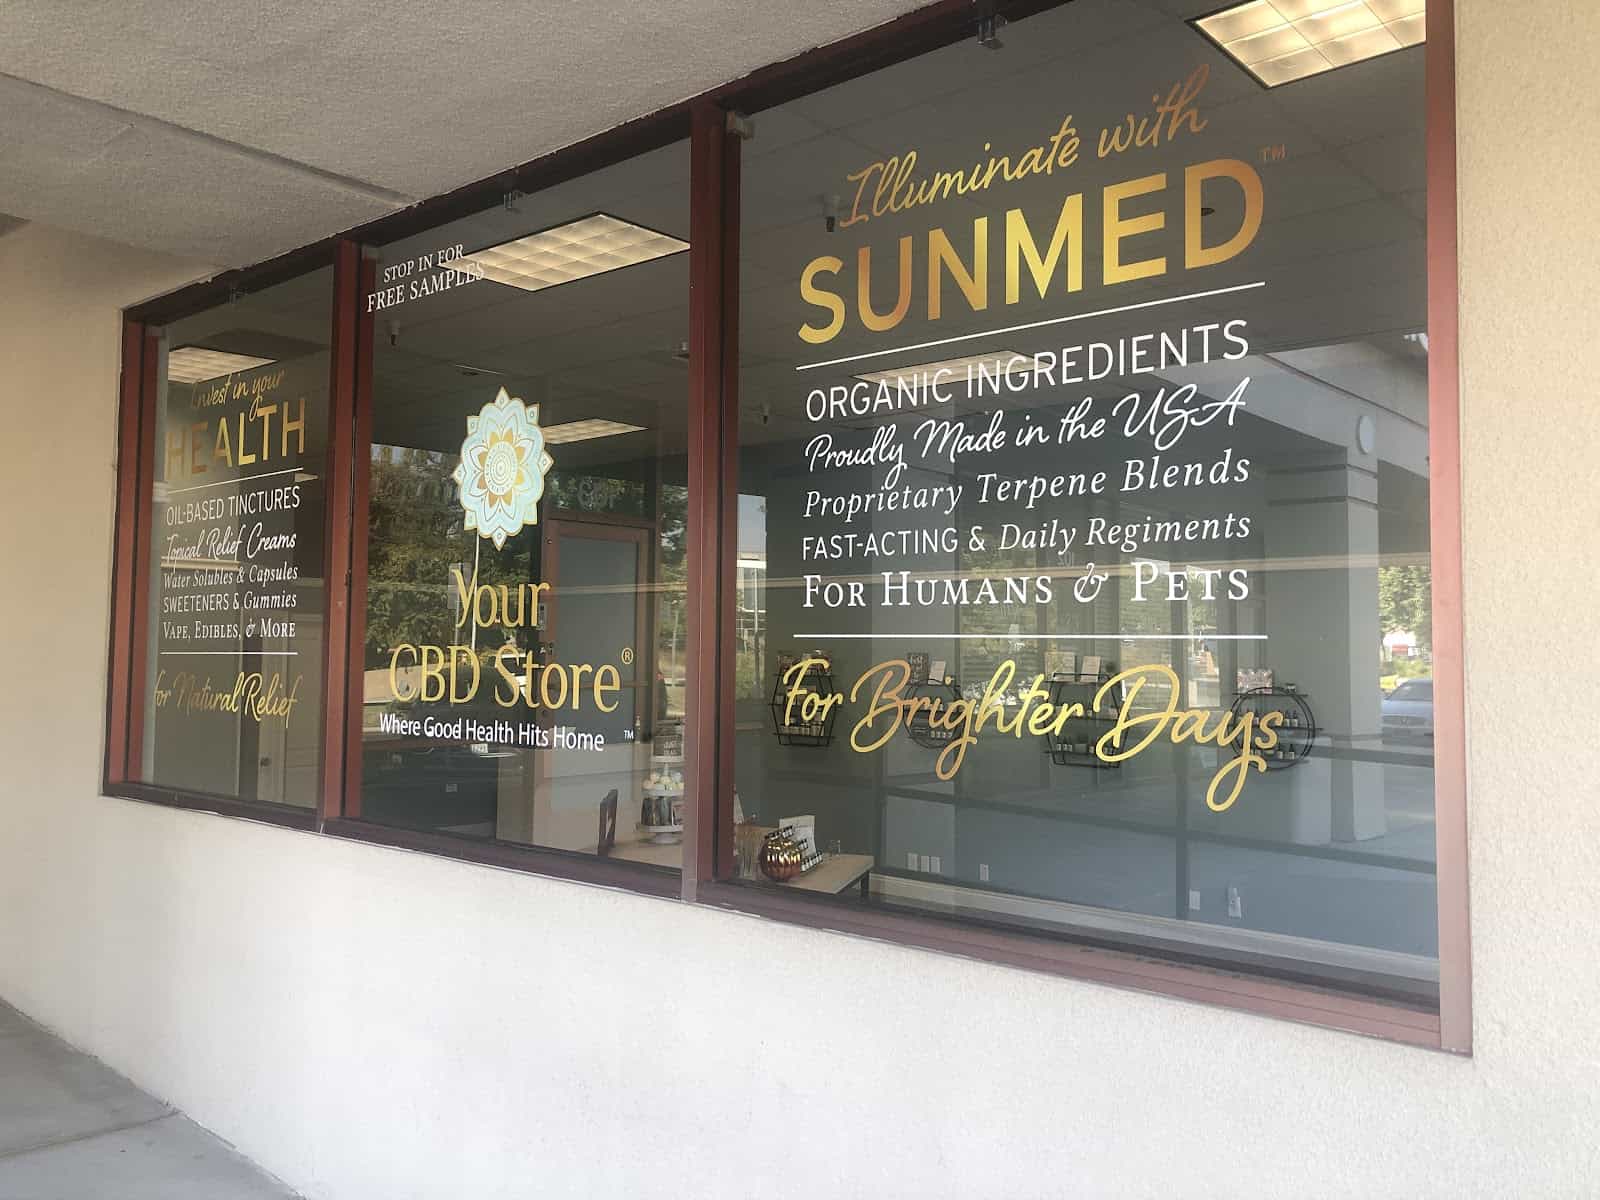 Invest in your
HEALTH
OIL-BASED TINCTURES
Topical Relief Creams
Water Solubles & Capsules
SWEETENERS & Gummies
VAPE, EDIBLES, & MORE
for Natural Relief
STOP IN FOR
FREE SAMPLES
Your
CBD Store®
Where Good Health Hits Home ™
Illuminate with
SUNMED™
ORGANIC INGREDIENTS
Proudly Made in the USA
Proprietary Terpene Blends
FAST-ACTING & Daily Regiments
FOR HUMANS & PETS
For Brighter Days